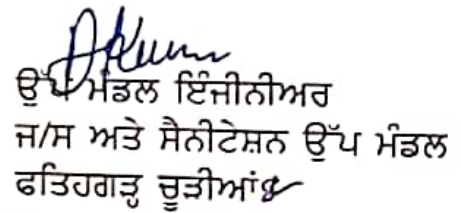 ਉੱਪ ਮੰਡਲ ਇੰਜੀਨੀਅਰ
ਜ/ਸ ਅਤੇ ਸੈਨੀਟੇਸ਼ਨ ਉੱਪ ਮੰਡਲ
ਫਤਿਹਗੜ੍ਹ ਚੂੜੀਆਂ